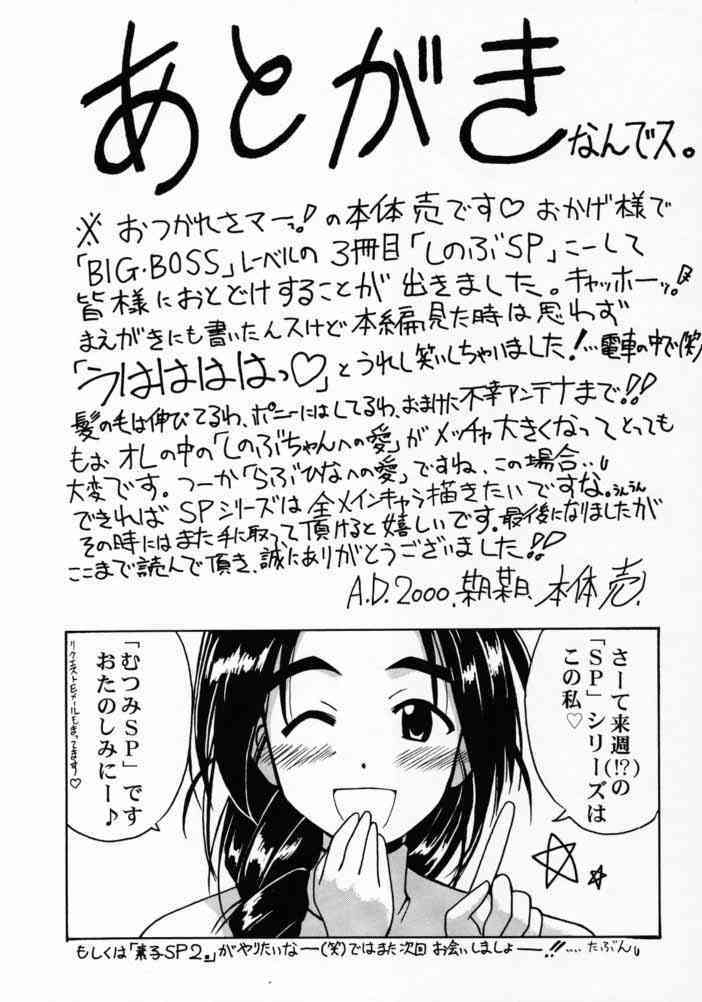 あとがき
なんでス。
※ おつかれさマーっ!の本体売です♡ おかげ様で
「BIG・BOSS」レーベルの 3冊目「しのぶSP」こーして
皆様におとどけすることが 出きました。キャッホーッ。
まえがきにも書いたんスけど本編見た時は思わず
「うははははっ♡」とうれし笑いしちゃいました!…電車の中で(笑)
髪の毛は伸びてるわ、ポニーにはしてるわ、おまけに不幸アンテナまで!!
もおオレの中の「しのぶちゃんへの愛」がメッチャ大きくなってとっても
大変です。つーか「らぶひなへの愛」ですね、この場合…。
できれば SPシリーズは全メインキャラ描きたいですな。うんうん
その時にはまた手に取って頂けると嬉しいです。最後になりましたが
ここまで読んで頂き、誠にありがとうございました!!
A.D.2000.某月某日 本体 売.
さーて来週(!?)の
「SP」シリーズは
この私♡
「むつみSP」です
おたのしみにー♪
リクエストEメールもまってます♡
もしくは「素子SP2。」がやりたいなー(笑)ではまた次回 お会いしましょー!!…. たぶん。